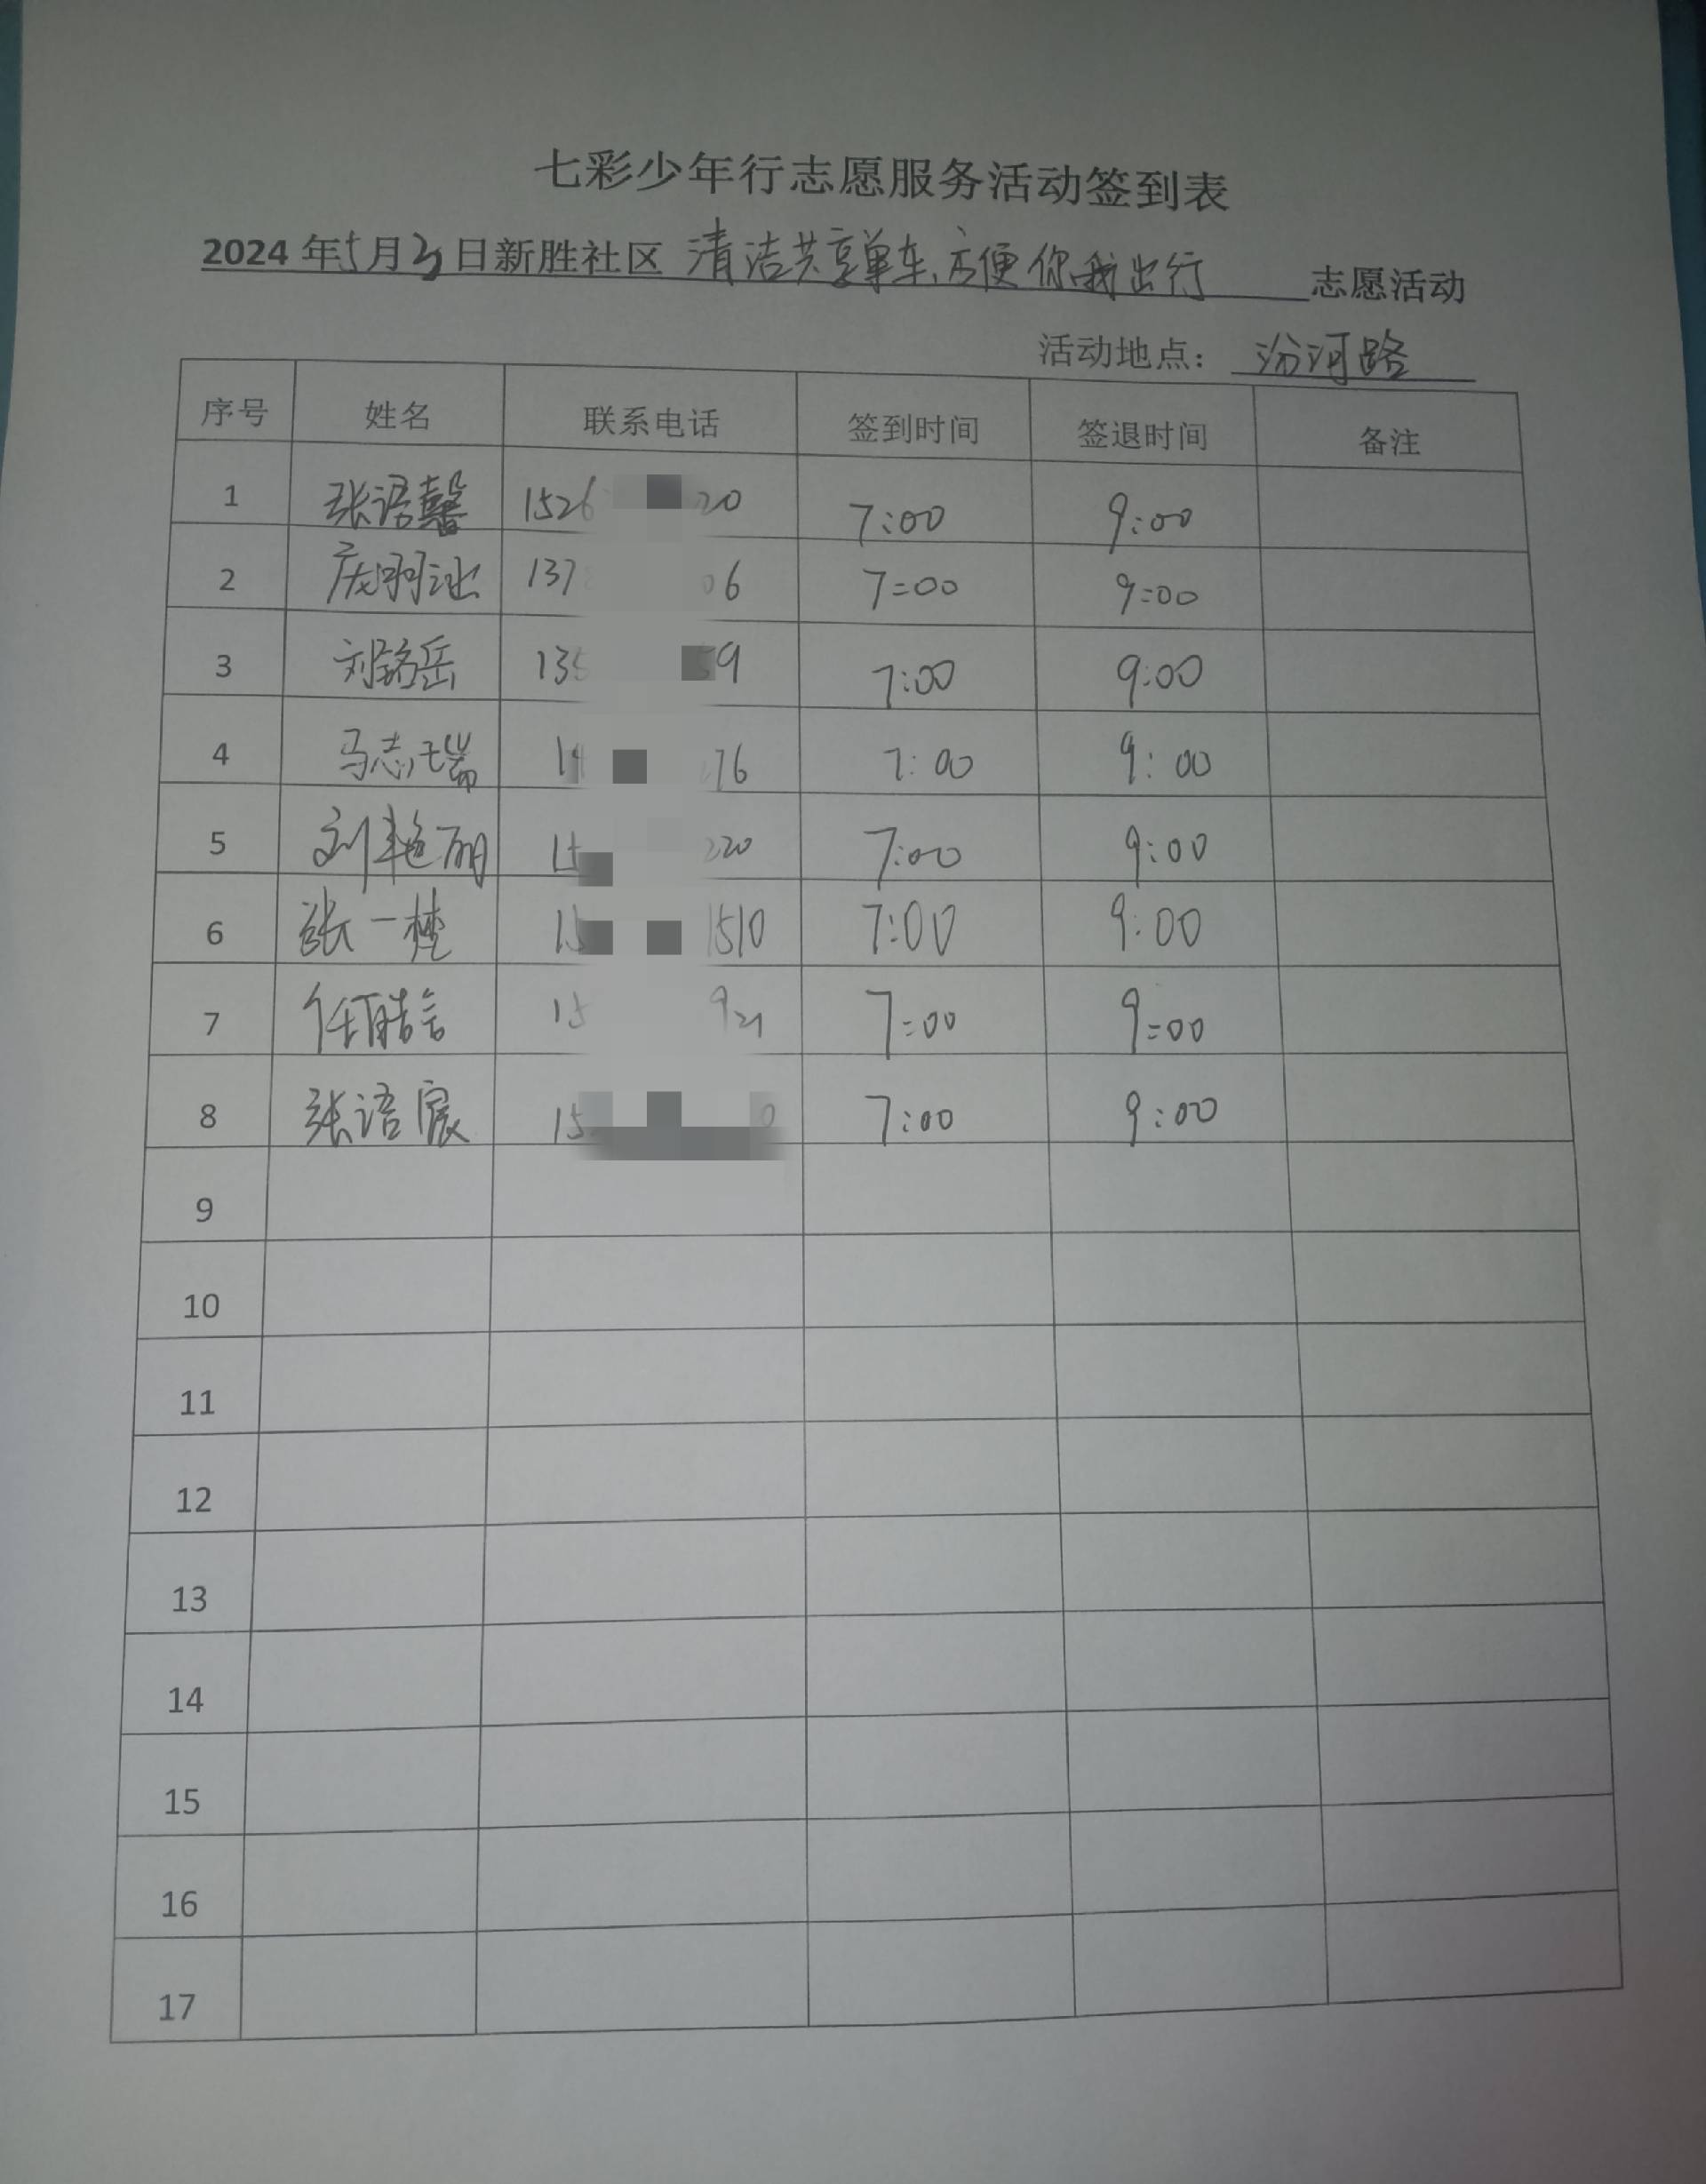 七彩少年行志愿服务活动签到表
2024年5月3日新胜社区 清洁共享单车、方便你我出行 志愿活动
活动地点: 汾河路
序号 姓名 联系电话 签到时间 签退时间 备注
1 张语馨 1526 20 7:00 9:00
2 137 06 7:00 9:00
3 刘铭岳 135 59 7:00 9:00
4 马志瑞 1 76 7:00 9:00
5 刘艳丽 15 220 7:00 9:00
6 张一楚 15 1510 7:00 9:00
7 15 921 7:00 9:00
8 张语宸 15 0 7:00 9:00
9
10
11
12
13
14
15
16
17